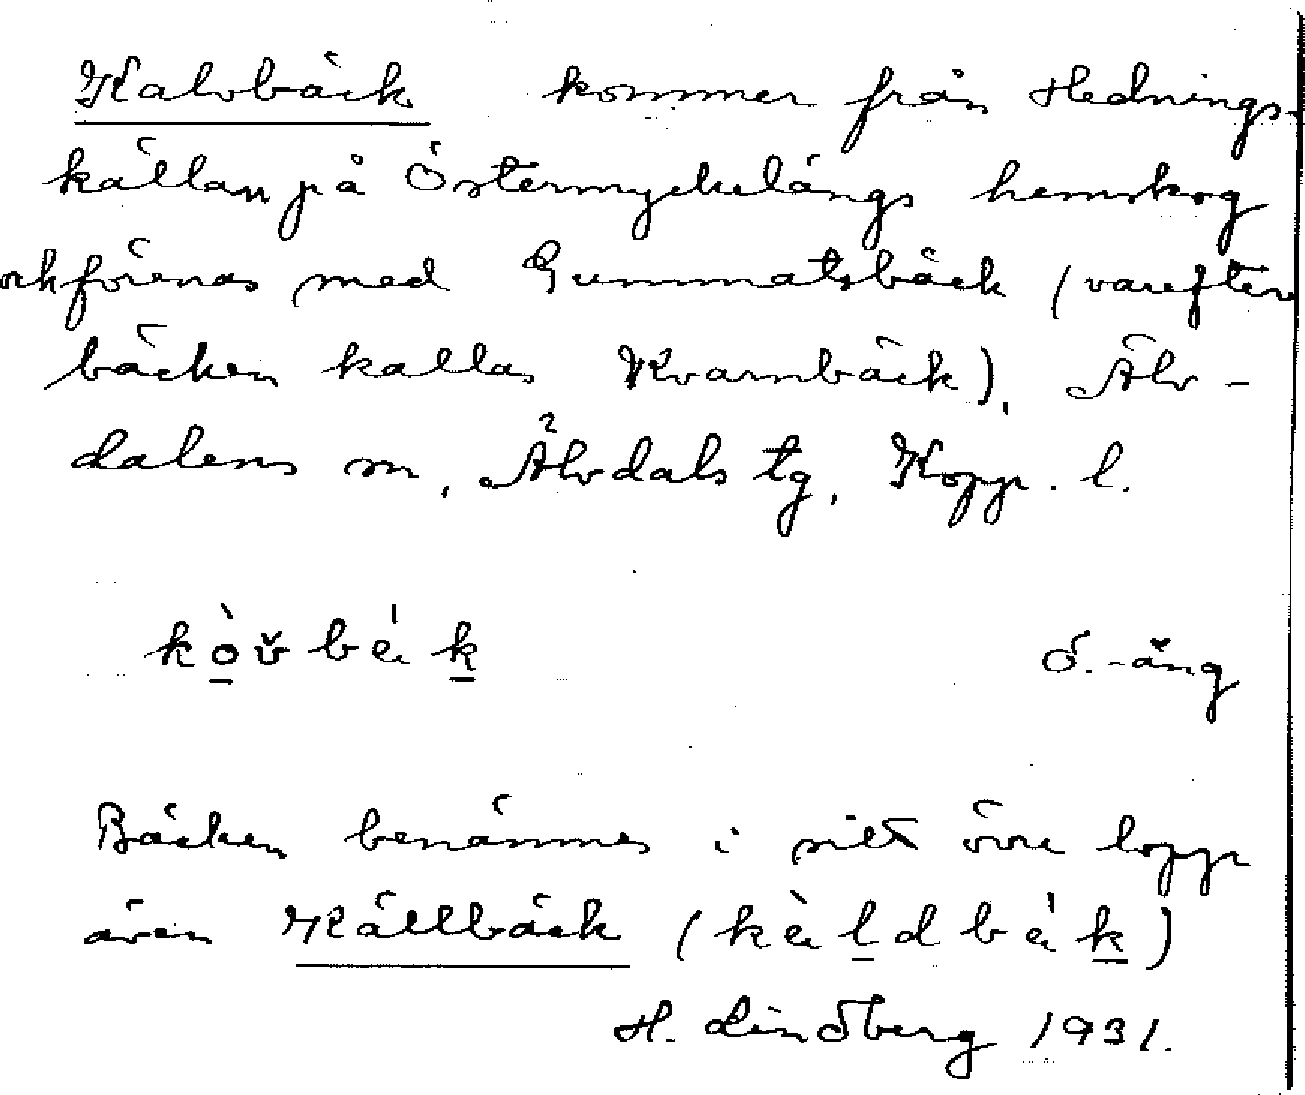 Kalvbäck kommer från Hednings-
källan på Östermyckelängs hemskog
och förenas med Gummatsbäck (varefter
bäcken kallas Kvarnbäck), Älv-
dalens sn, Älvdals tg, Kopp. l.
kòv̆bä́k
Ö.-äng
Bäcken benämnes i sitt övre lopp
även Källbäck (kæ̀ldbä́k)
H. Lindberg 1931.